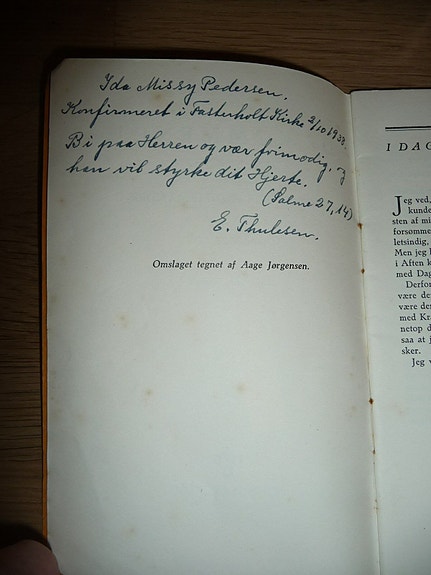 Ida Missy Pedersen.
Konfirmeret i Fasterholt Kirke 2/10 1938.
Bi paa Herren og vær frimodig, og
han vil styrke dit Hjerte.
(Salme 27,14)
E. Thulesen.
Omslaget tegnet af Aage Jørgensen.
I DAG
Jeg ved,
kunde
sten af mi
forsomme
letsindig,
Men jeg h
i Aften k
med Dag
Derfor
være de
være de
med Kra
netop d
saa at j
sker.
Jeg v